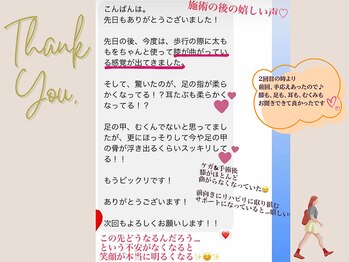 Thank
You.
施術の後の嬉しい声♡
こんばんは。
先日もありがとうございました！
先日の後、今度は、歩行の際に太も
ももをちゃんと使って膝が曲がっている
感覚が出てきました。
そして、驚いたのが、足の指が柔ら
かくなってる！？耳たぶも柔らかく
なってる！？
足の甲、むくんでないと思ってまし
たが、更にほっそりして今や足の甲
の骨が浮き出るくらいスッキリして
る！！
もうビックリです！
ありがとうございます！
次回もよろしくお願いします！！
2回目の時より
前回、手応えあったので♪
膝も、足も、耳も、むくみも
お聞きできて良かったです♡
ケガ&手術後
膝がほとんど
曲がらなくなっていた😅
前向きにリハビリに取り組む
サポートになっていると…嬉しい
この先どうなるんだろう…
という不安がなくなると
笑顔が本当に明るくなる✨😄✨